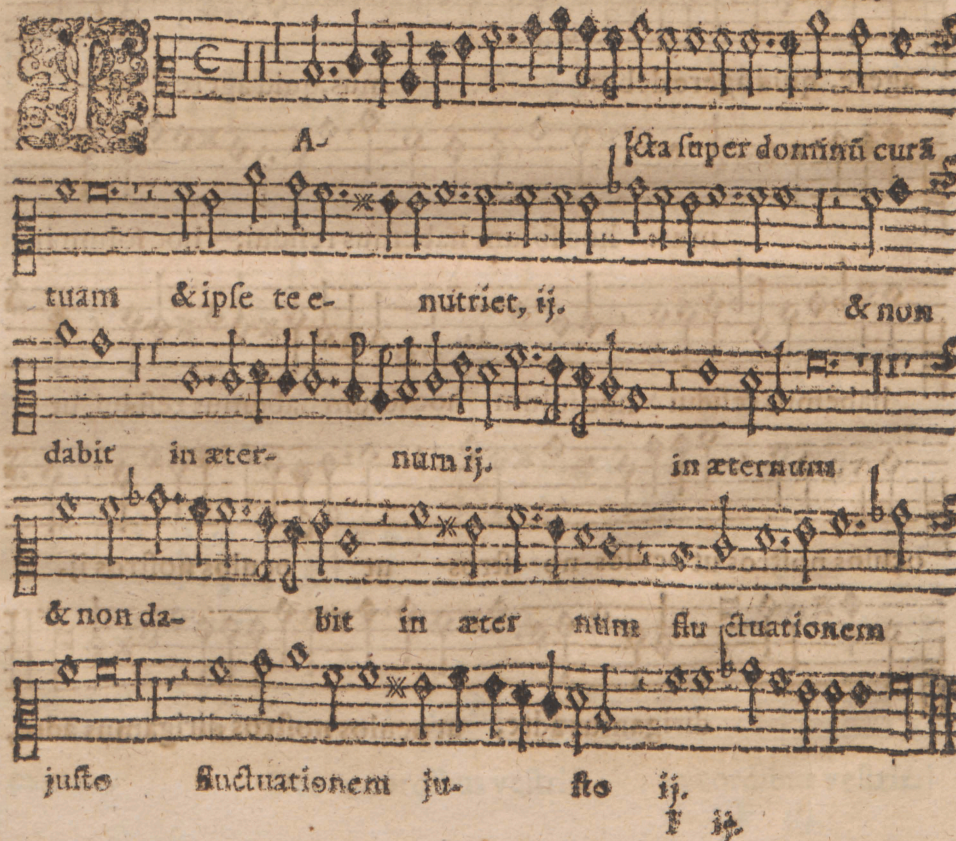 IA- ſcta ſuper dominũ curã
tuam & ipſe te e- nutriet, ij. & non
dabit in æter- num ij. in æternum
& non da- bit in æter num flu ctuationem
juſto fluctuationem ju- ſto ij.
F ij.